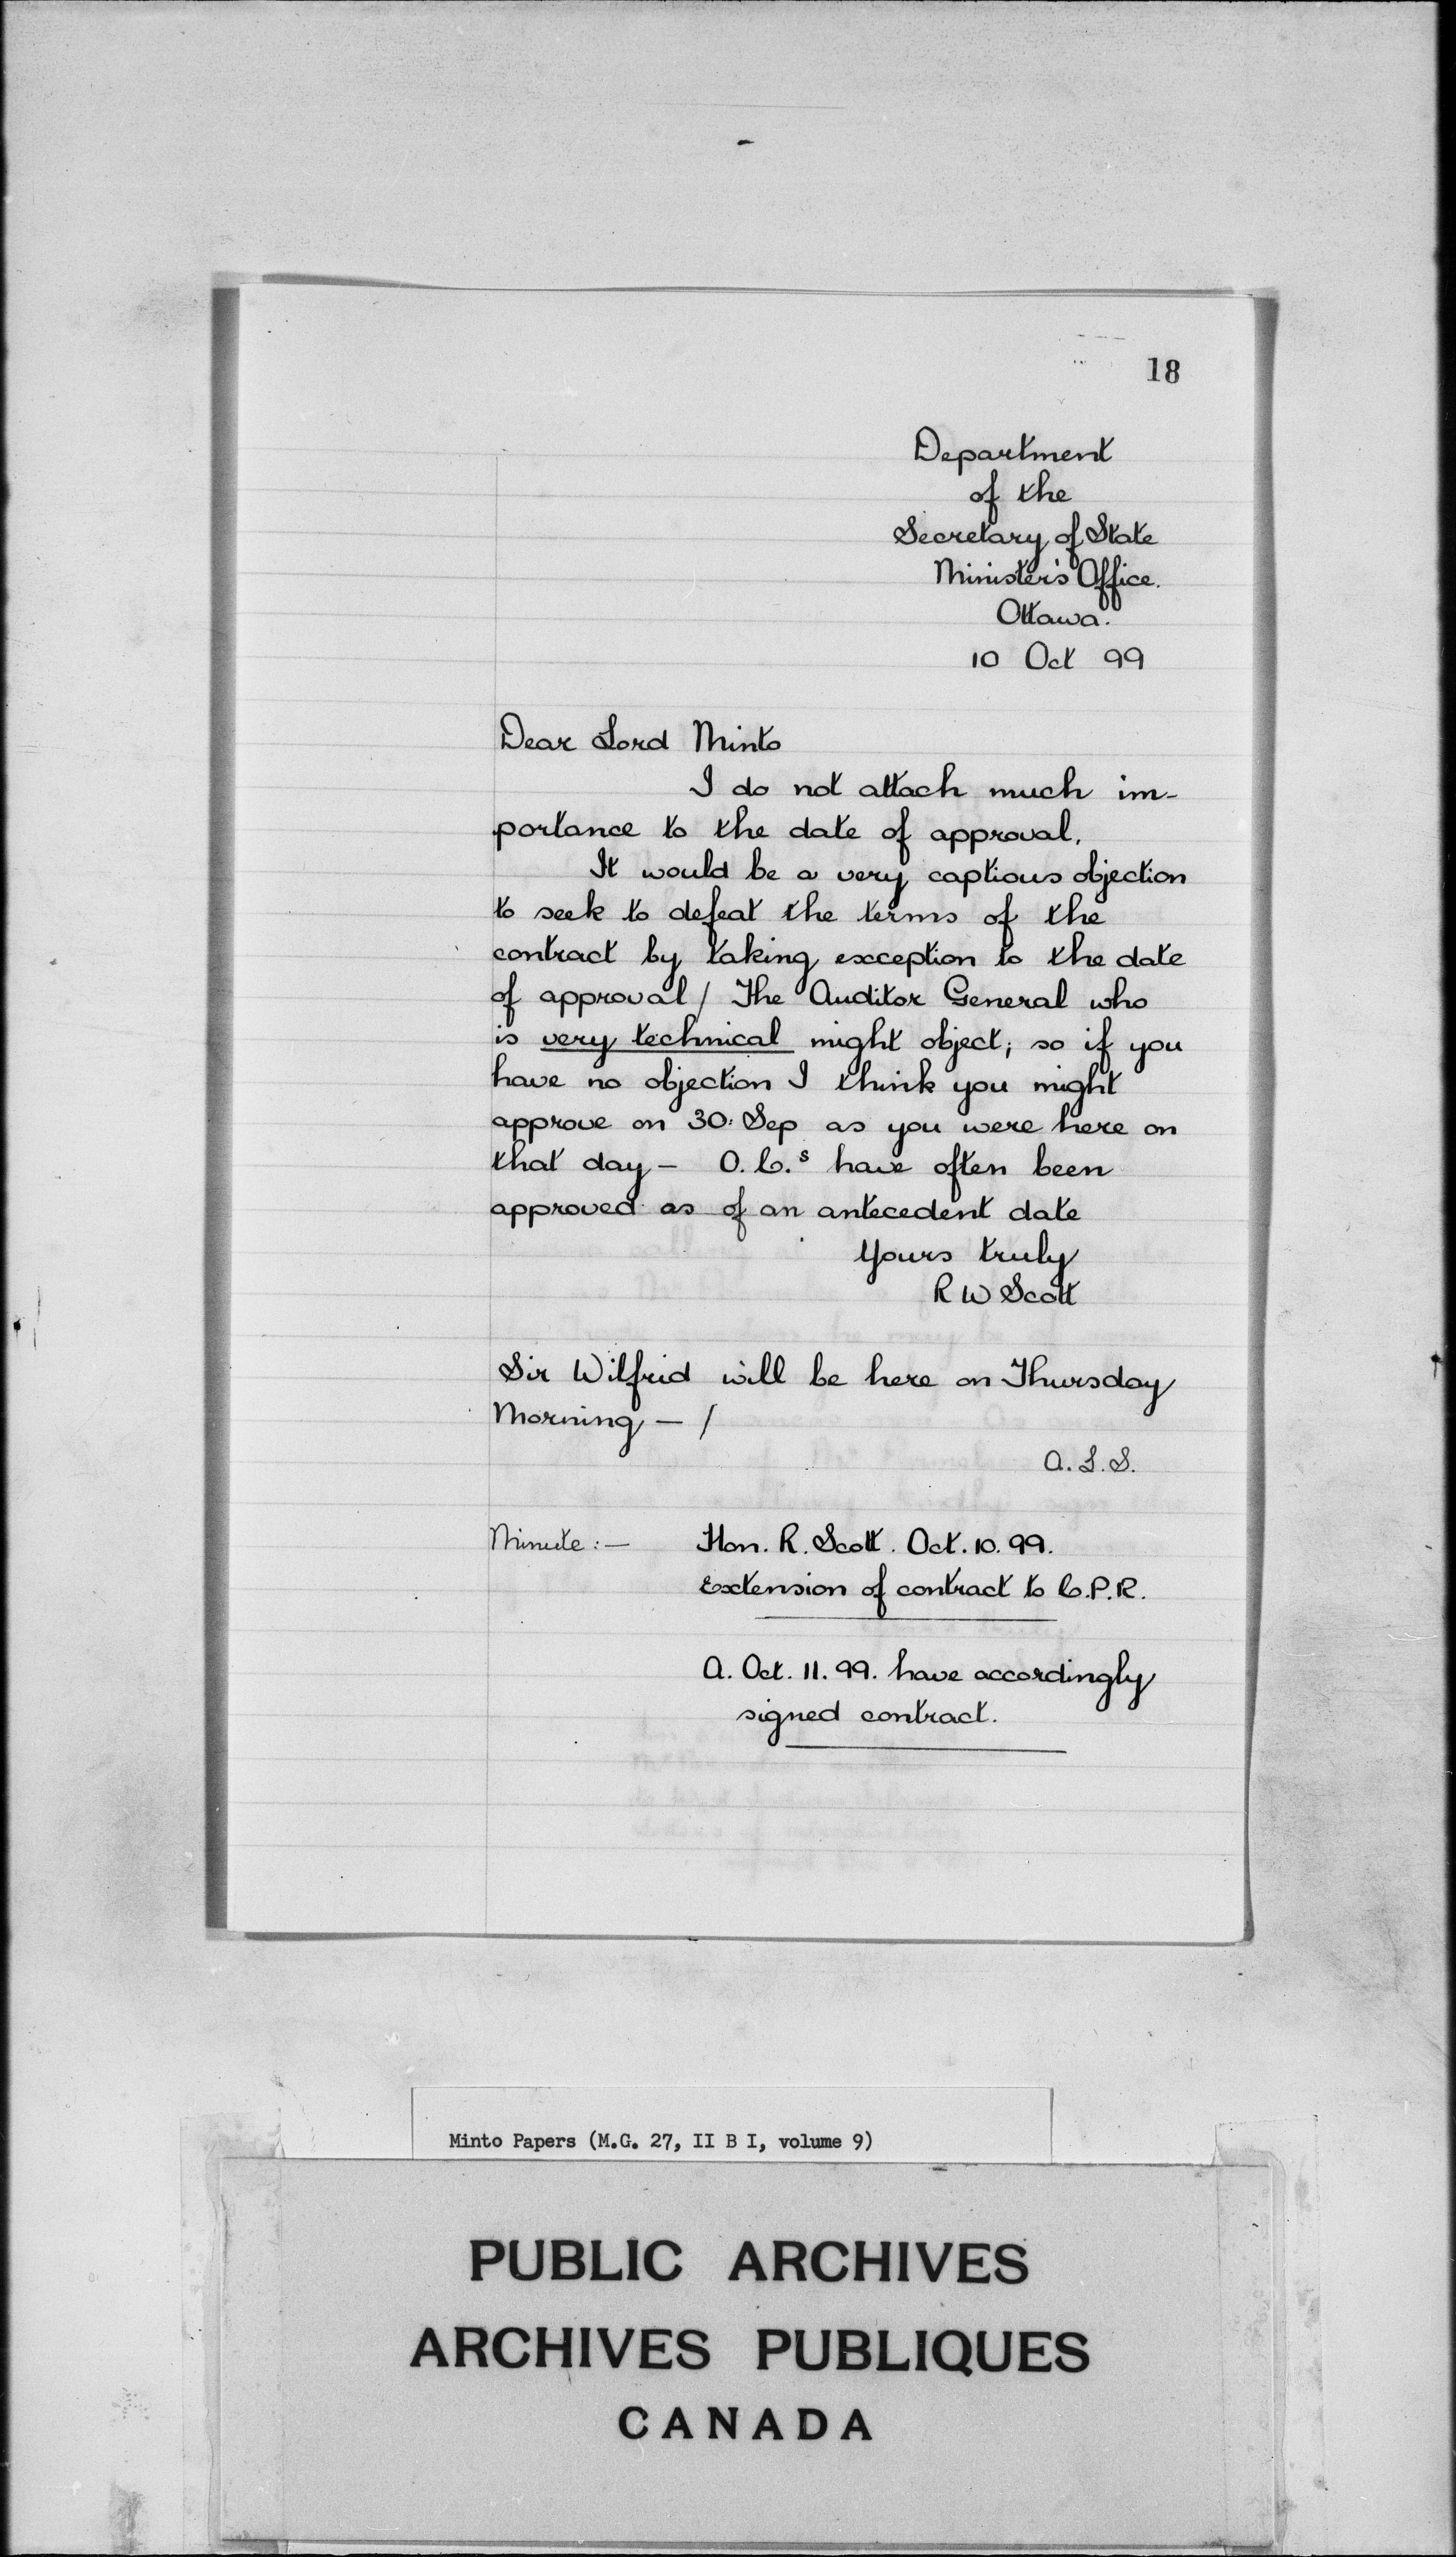 18
Department
of the
Secretary of State
Minister's Office.
Ottawa.
10 Oct 99
Dear Lord Minto
I do not attach much im-
portance to the date of approval.
It would be a very captious objection
to seek to defeat the terms of the
contract by taking exception to the date
of approval / The Auditor General who
is very technical might object; so if you
have no objection I think you might
approve on 30: Sep as you were here on
that day – O.C.s have often been
approved as of an antecedent date
Yours truly
R W Scott
Sir Wilfrid will be here on Thursday
Morning – /
A.L.S.
Minute :– Hon. R. Scott. Oct. 10. 99.
Extension of contract to C.P.R.
A. Oct. 11. 99. have accordingly
signed contract.
Minto Papers (M.G. 27, II B I, volume 9)
PUBLIC ARCHIVES
ARCHIVES PUBLIQUES
CANADA